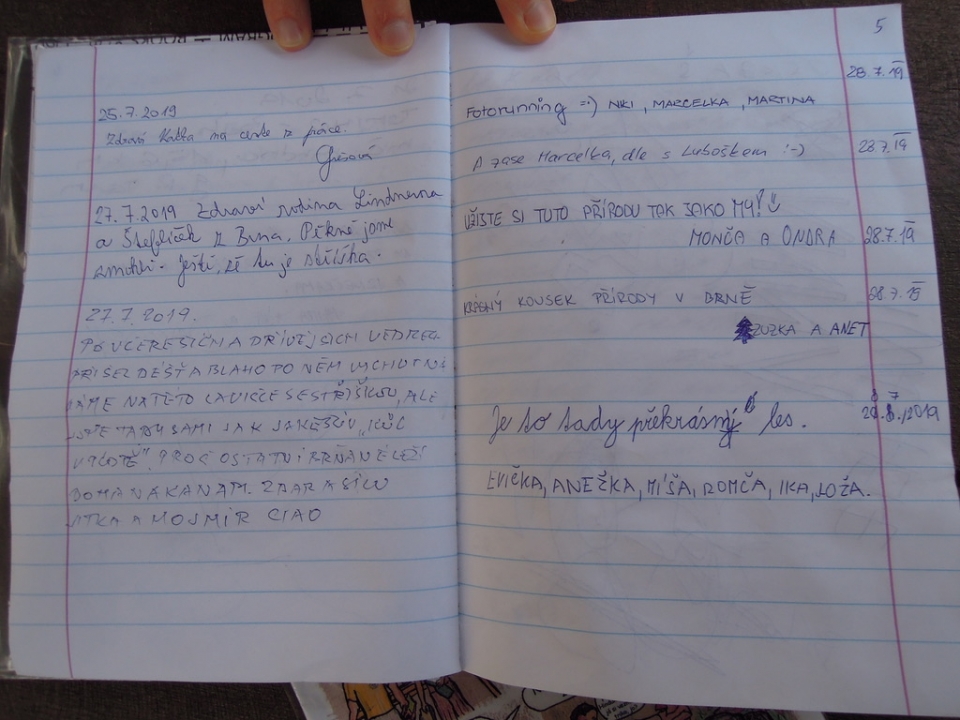 25.7.2019
Zdraví Katka na cestě z práce.
27.7.2019 Zdraví rodina Lindnerova
a Štefliček z Brna. Pěkně jsme
zmokli. Ještě, že tu je stříška.
27.7.2019.
PO VČEREJŠÍCH A DŘÍVĚJŠÍCH VEDREC
PŘIŠEL DÉŠŤ A BLAHO PO NĚM VYCHUTNÁ
VÁME NA TÉTO LAVIČCE SE STŘÍŠKOU, ALE
JSME TADY SAMI JAK
PROČ OSTATNÍ BRŇANÉ LEŽÍ
DOMA NA KANAM. ZDAR A SÍLU
JITKA A MOJMÍR CIAO
5
28.7.19
Fotorunning =:) NIKI, MARCELKA, MARTINA
A zase Marcelka, dle s Luboškem :-) 28.7.19
UŽIJTE SI TUTO PŘÍRODU TAK JAKO MY!
MONČA A ONDRA 28.7.19
KRÁSNÝ KOUSEK PŘÍRODY V BRNĚ 28.7.19
ZUZKA A ANET
Je to tady překrásný les.
EVIČKA, ANEŽKA, MÍŠA, ROMČA, IKA, JOŽA.